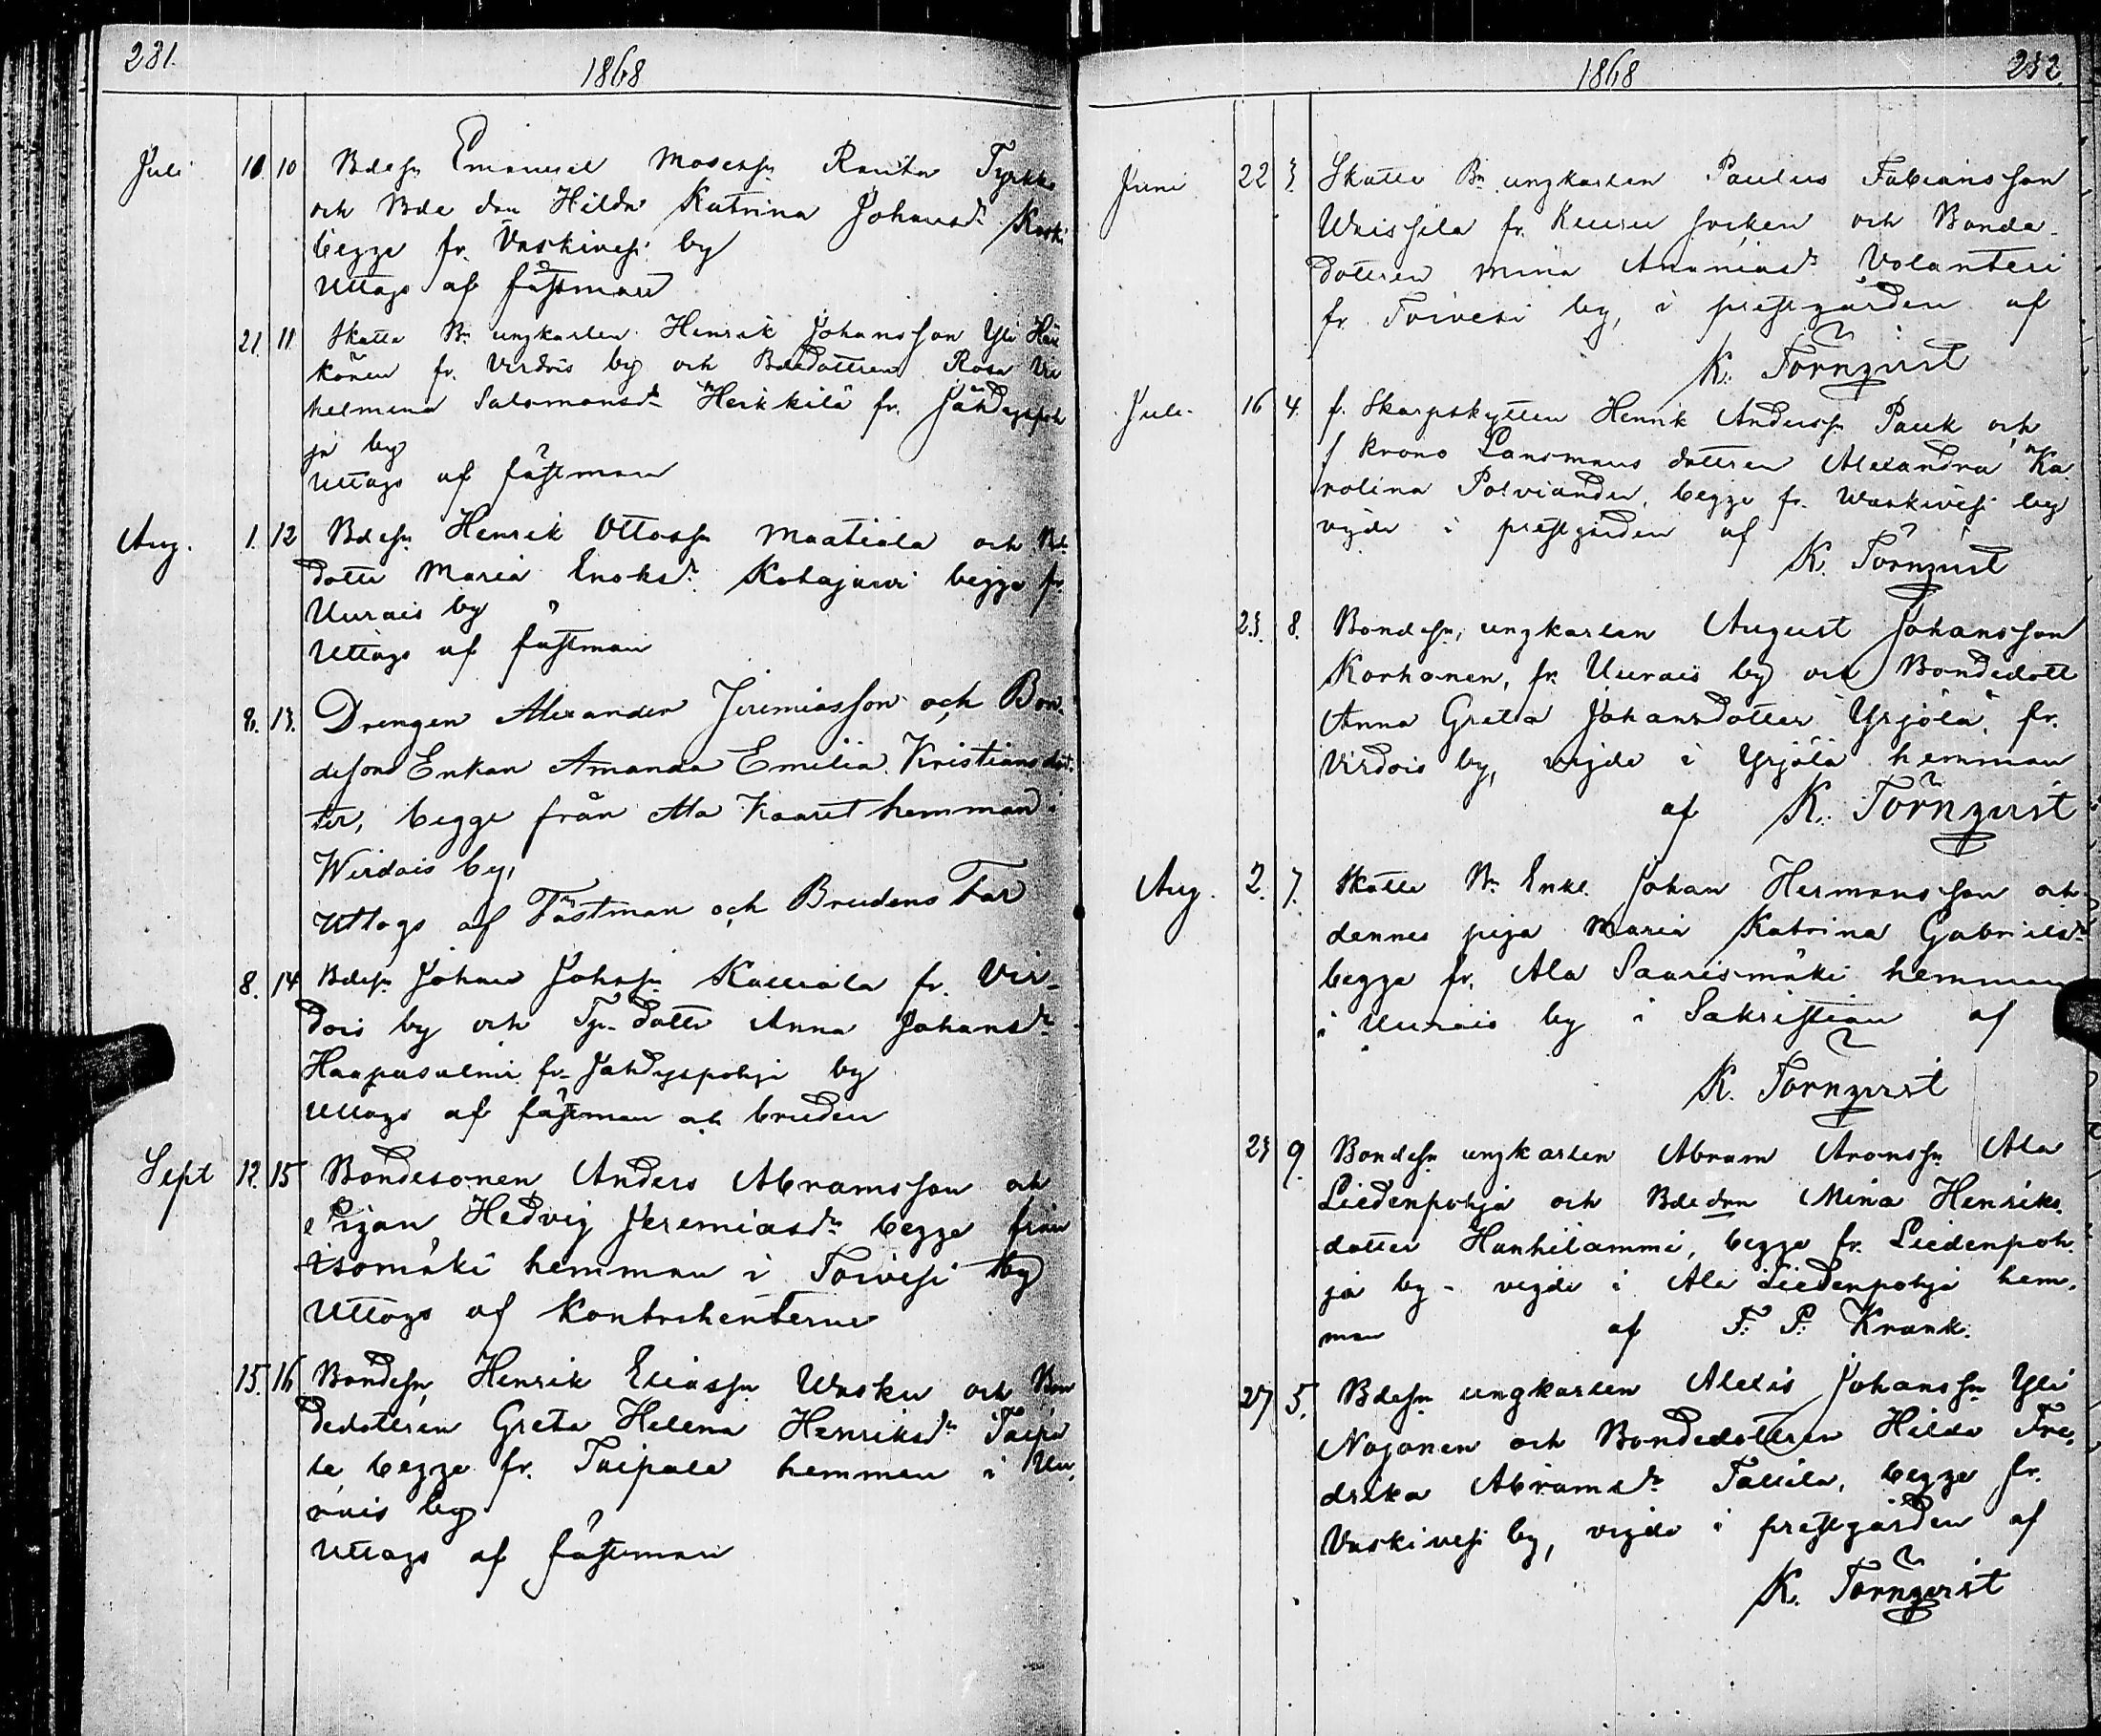 231.
1868
Juli 10. 10 Bdesn Emanuel Mosessn Ranta Tyrkkö
och Bde don Hilda Katrina Johansdr Koski
begge fr. Vaskivesi by
Uttags af fästman
21. 11 Skatte Bn ungkarlen Henrik Johansson Yli Här
könen fr. Virdois by och Bdedottren Rosa Vil
helmina Salomonsdr Heikkilä fr. Jähdyspoh
ja by
Uttags af fästman
Aug. 1. 12 Bdesn Henrik Ottossn Maatiala och Bde
dotter Maria Enoksdr Kotajärvi begge fr.
Uurais by
Uttags af fästman
8. 13. Drengen Alexander Jeremiasson och Bon-
deson Enkan Amanda Emilia Kristiansdot-
ter, begge från Ala Kaaret hemman i
Wirdois by,
Uttags af Fästman och Brudens Far
8. 14 Bdesn Johan Johssn Kalliala fr. Vir-
dois by och Tp. dotter Anna Johansdr
Haapasalmi fr. Jähdyspohja by
Uttags af fästman och bruden
Sept 12. 15 Bondesonen Anders Abramsson och
Pigan Hedvig Jeremiasdr begge från
Isomäki hemman i Toivesi by
Uttags af Kontrahenterne
15. 16 Bondesn Henrik Eliassn Wasku och Bon
dedottren Greta Helena Henriksdr Taipa
le begge fr. Taipale hemman i Uu
rais by
Uttags af fästman
1868
232.
Juni 22 3. Skatte Bn ungkarlen Paulus Fabiansson
Waissila fr. Kuru socken och Bonde-
dottren Mina Ananiasdr Volanteri
fr. Toivesi by, i prestgården af
K. Törnqvist
Juli 16 4. f. Skarpskytten Henrik Anderssn Pauk och
f Krono Lansmans dottren Alexandra Ka
rolina Polviander, begge fr. Waskivesi by
vigde i prestgården af
K. Törnqvist
23. 8. Bondesn, ungkarlen August Johansson
Korhonen, fr. Uurais by och Bondedott
Anna Greta Johansdotter Yrjölä, fr.
Virdois by, vigde i Yrjölä hemman
af K. Törnqvist
Aug. 2. 7. Skatte Bn Enkl. Johan Hermansson och
dennes piga Maria Katrina Gabrielsdr
begge fr. Ala Saarismäki hemman
i Uurais by i Sakristian af
K. Törnqvist
23 9. Bondesn ungkarlen Abram Aronssn Ala
Liedenpohja och Bdedrn Mina Henriks
dotter Hanhilammi, begge fr. Liedenpoh
ja by - vigde i Ala Liedenpohja hem-
man af F. P. Krank.
27 5. Bdesn ungkarlen Alexis Johanssn Yli
Nojonen och Bondedottren Hilda Fre
drika Abramsdr Tallila, begge fr.
Vaskivesi by, vigde i prestgården af
K. Törnqvist